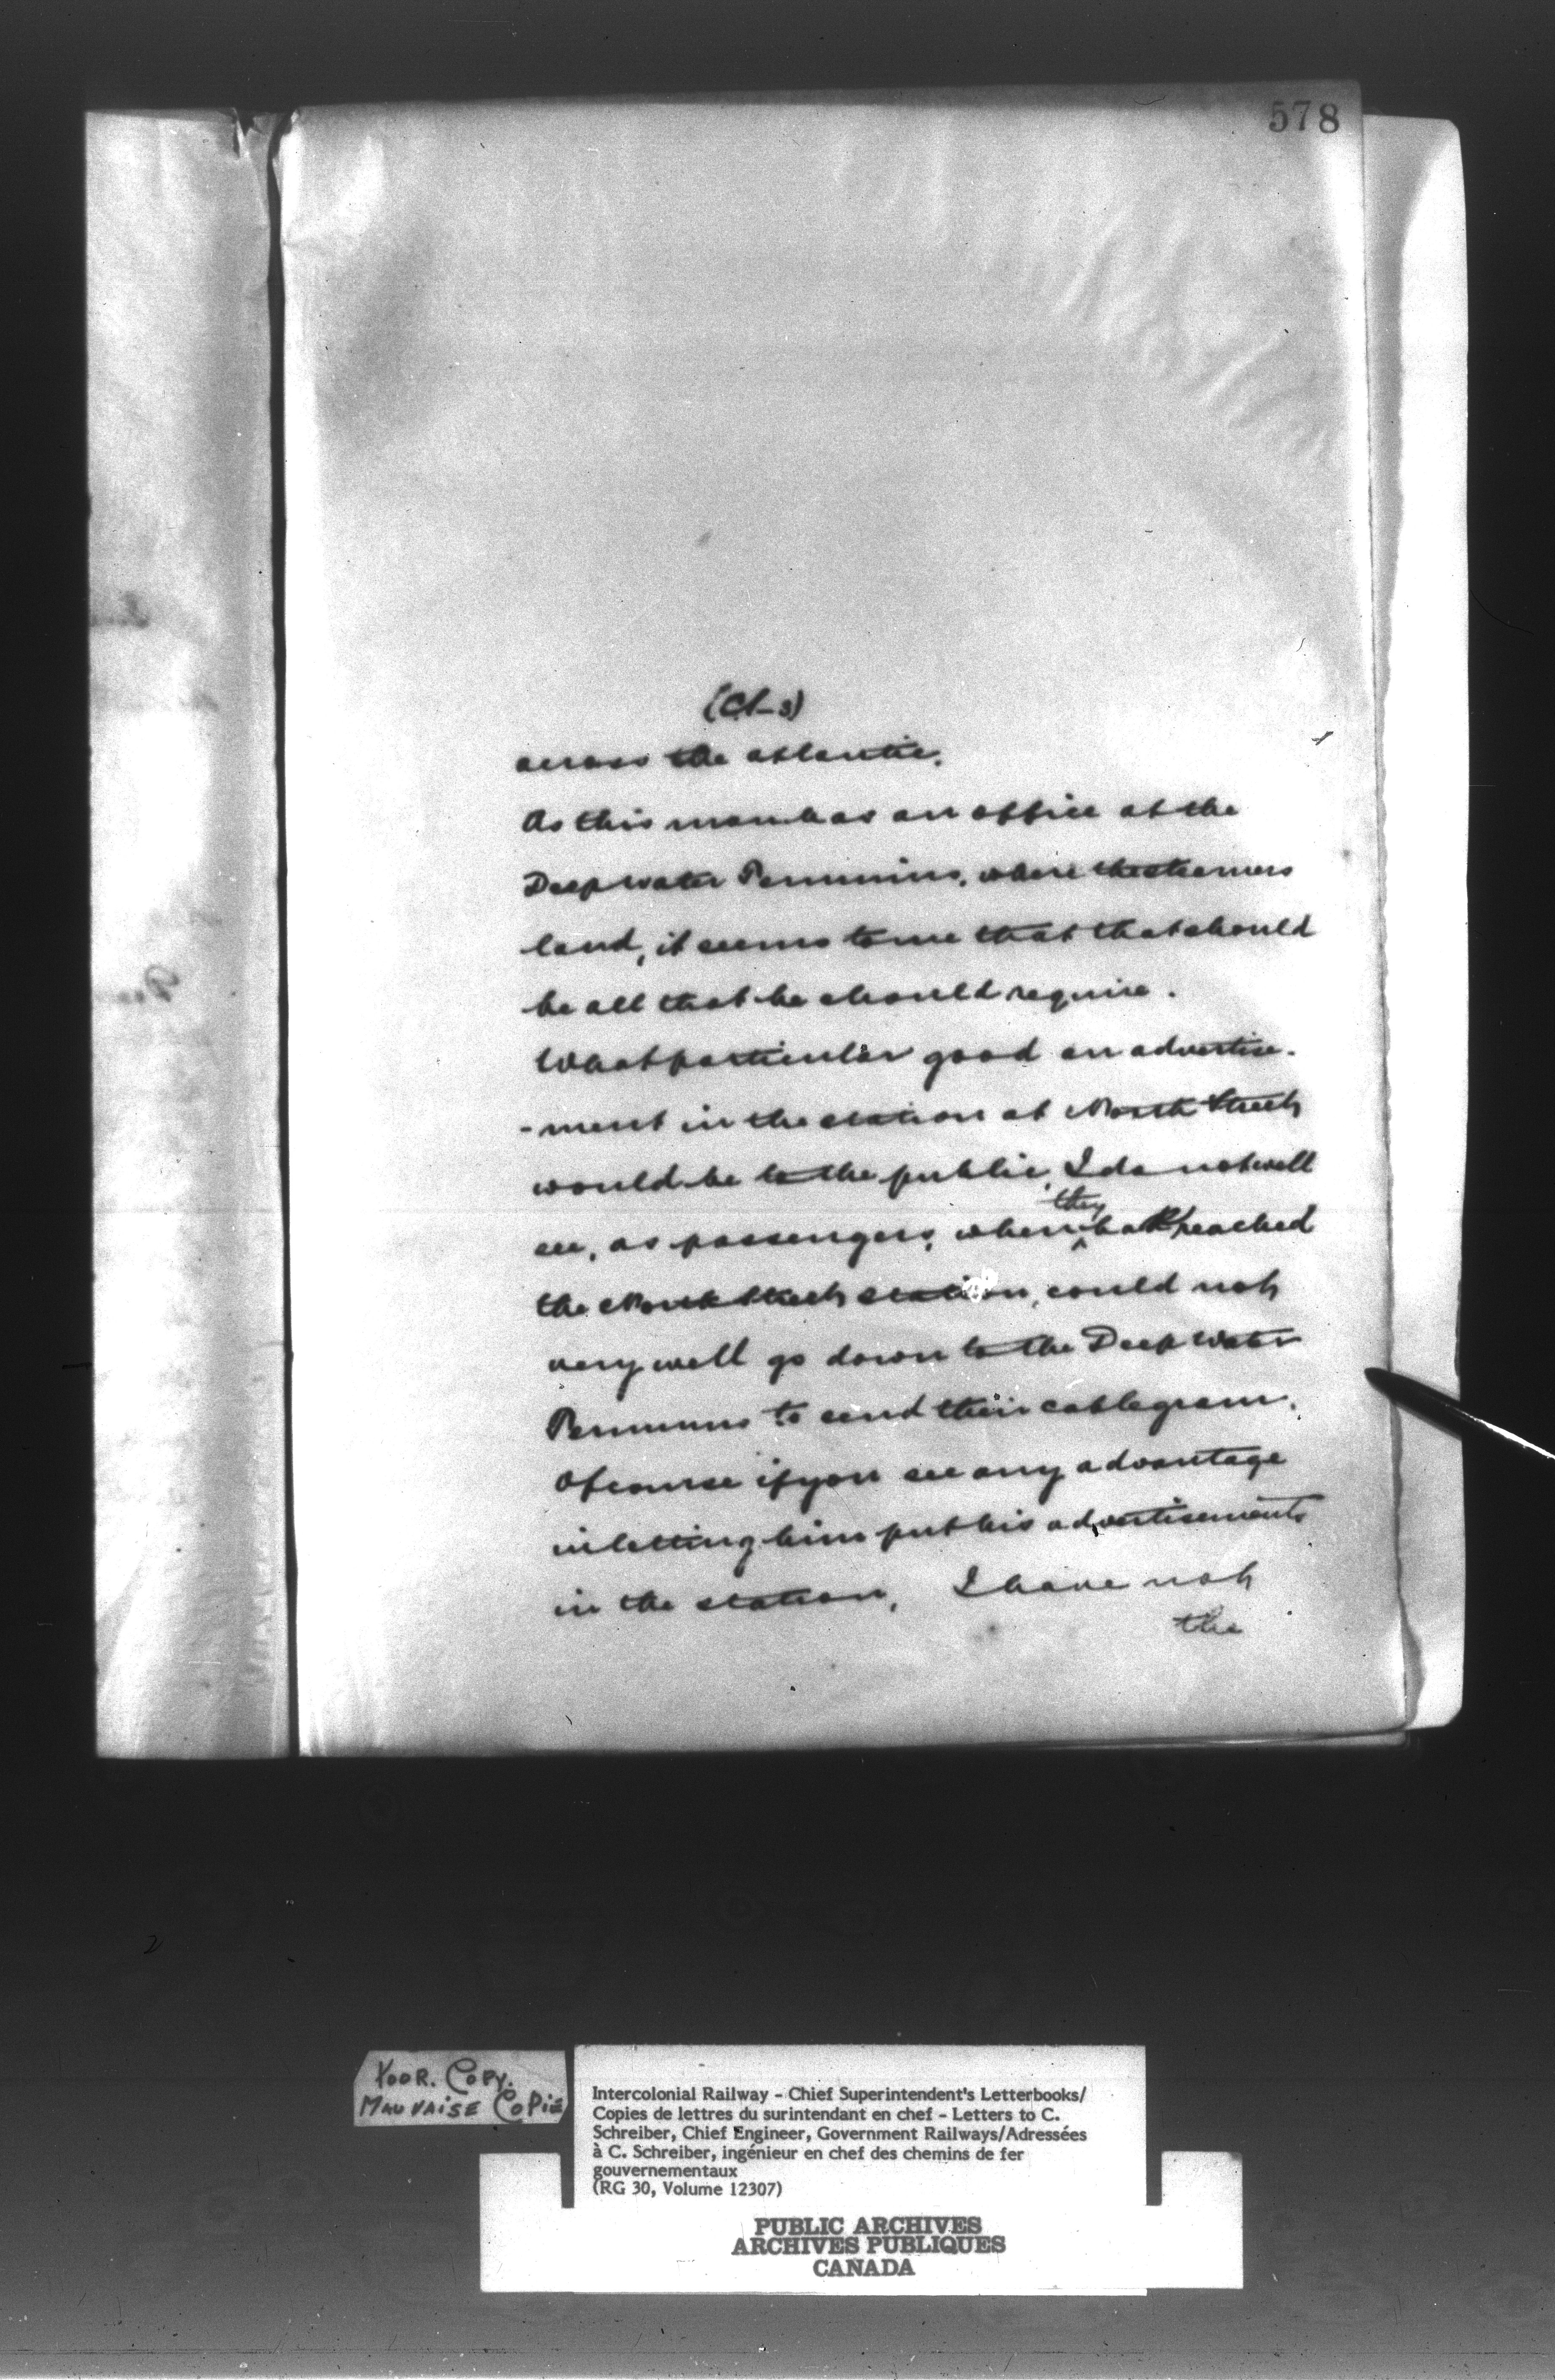 578
(Cl-3)
across the atlantic.
As this man has an office at the
Deep water Terminus, where the steamers
land, it seems to me that that should
be all that he should require.
What particular good an advertise-
-ment in the station at North Street
would be to the public, I do not well
see, as passengers, when they had reached
the North Street station, could not
very well go down to the Deep Water
Terminus to send their cablegram.
Of course if you see any advantage
in letting him put his advertisements
in the station, I have not
the
POOR. COPY.
MAUVAISE COPIE
Intercolonial Railway - Chief Superintendent's Letterbooks/
Copies de lettres du surintendant en chef - Letters to C.
Schreiber, Chief Engineer, Government Railways/Adressées
à C. Schreiber, ingénieur en chef des chemins de fer
gouvernementaux
(RG 30, Volume 12307)
PUBLIC ARCHIVES
ARCHIVES PUBLIQUES
CANADA